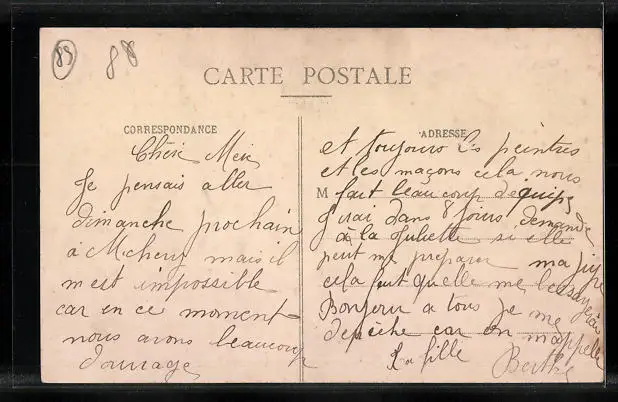 83 88
CARTE POSTALE
CORRESPONDANCE
Chère Mère
Je pensais aller
dimanche prochain
à M. chery mais il
m est impossible
car en ce moment
nous avons beaucoup
d'ouvrage
ADRESSE
et toujours les peintres
et les maçons cela nous
M fait beaucoup
J'irai dans 8 jours demande
à la Juliette si elle
peut me préparer ma jupe
cela faut quelle me
Bonjour a tous je me
dépêche car on m'appelle
La fille
Berthe